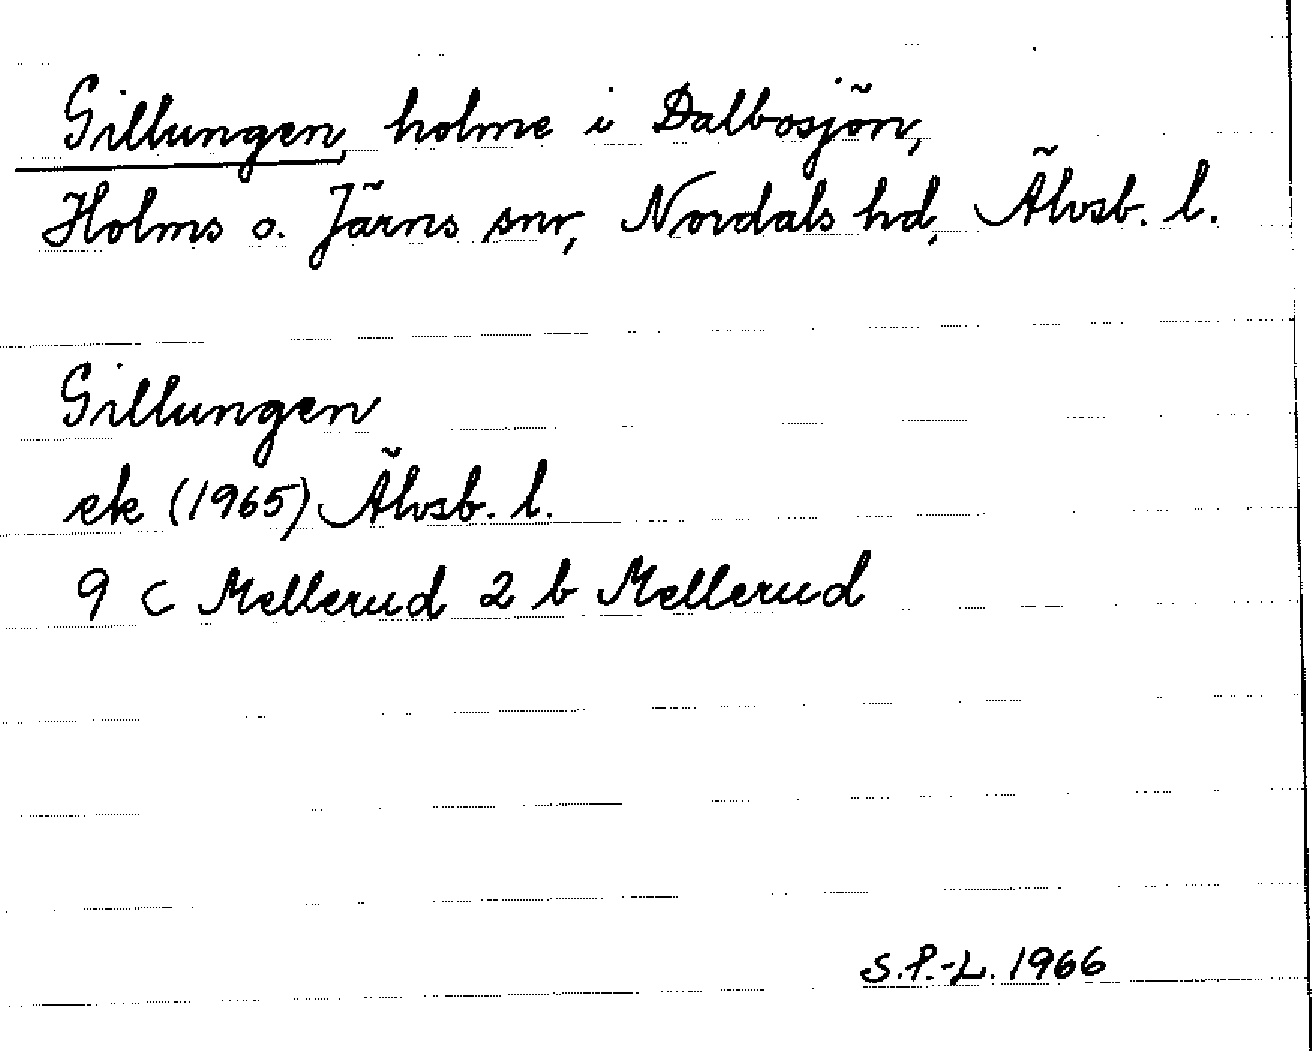 Gillungen, holme i Dalbosjön,
Holms o. Järns snr, Nordals hd, Älvsb. l.
Gillungen
ek (1965) Älvsb. l.
9 c Mellerud 2 b Mellerud
S.P.-L. 1966